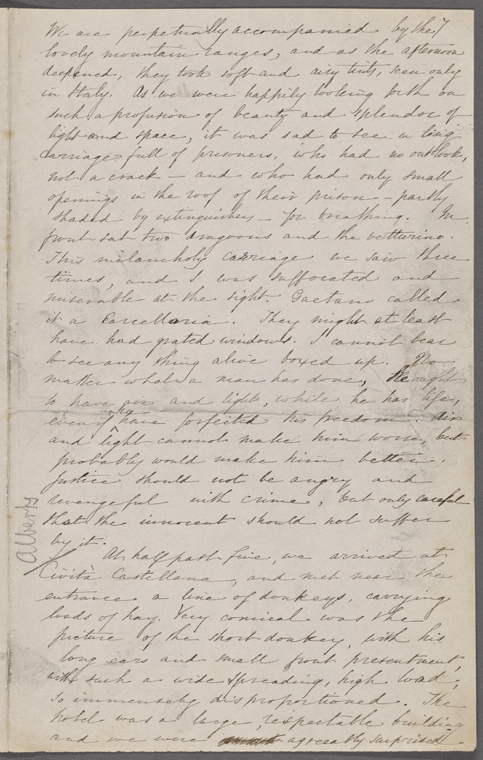 We are perpetually accompanied by the
lovely mountain ranges, and as the afternoon
deepened, they took soft and airy tints, seen only
in Italy. As we were happily looking forth on
such a profusion of beauty and splendor of
light and space, it was sad to see a long
carriage full of prisoners, who had no outlook,
not a crack – and who had only small
openings in the roof of their prison – partly
shaded by extinguishers – for breathing. In
front sat two dragoons and the vetturino.
This melancholy carriage we saw three
times, and I was suffocated and
miserable at the sight. Gaetano called
it a Carcellaria. They might at least
have had grated windows. I cannot bear
to see any thing alive boxed up. No
matter what a man has done, he ought
to have air and light, while he has life,
even if he have forfeited his freedom. Air
and light cannot make him worse, but
probably would make him better.
Justice should not be angry and
revengeful with crime, but only careful
that the innocent should not suffer
by it.
At half past five, we arrived at
Cività Castellana, and met near the
entrance a line of donkeys, carrying
loads of hay. Very comical was the
picture of the short donkey, with his
long ears and small front presentment,
with such a wide spreading, high load,
so immensely disproportioned. The
hotel was a large, respectable building
and we were agreeably surprised
Alberty